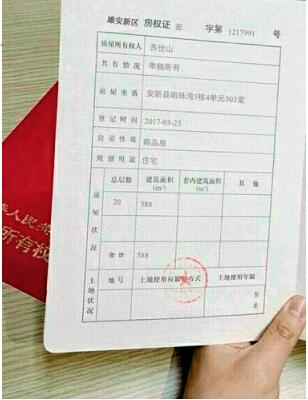 雄安新区 房权证 安 字第 1217991 号
房屋所有权人 苏世山
共有情况 单独所有
房屋坐落 安新县明珠湾5栋4单元303室
登记时间 2017-03-23
房屋性质 商品房
规划用途 住宅
房屋状况
总层数 建筑面积(m²) 套内建筑面积(m²) 其他
20 588
合计 588
土地状况
地号 土地使用权取得方式 土地使用年限
至
止
人民共
所有权